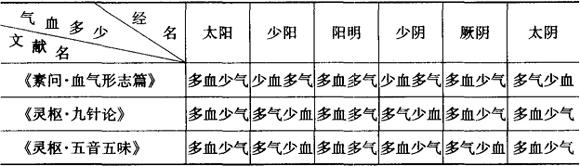 气血多少 经名 文献名 太阳 少阳 阳明 少阴 厥阴 太阴
《素问·血气形志篇》 多血少气 少血多气 多血多气 少血多气 多血少气 多气少血
《灵枢·九针论》 多血少气 多气少血 多血多气 多气少血 多血少气 多血少气
《灵枢·五音五味》 多血少气 多气少血 多血多气 多血少气 多气少血 多血少气